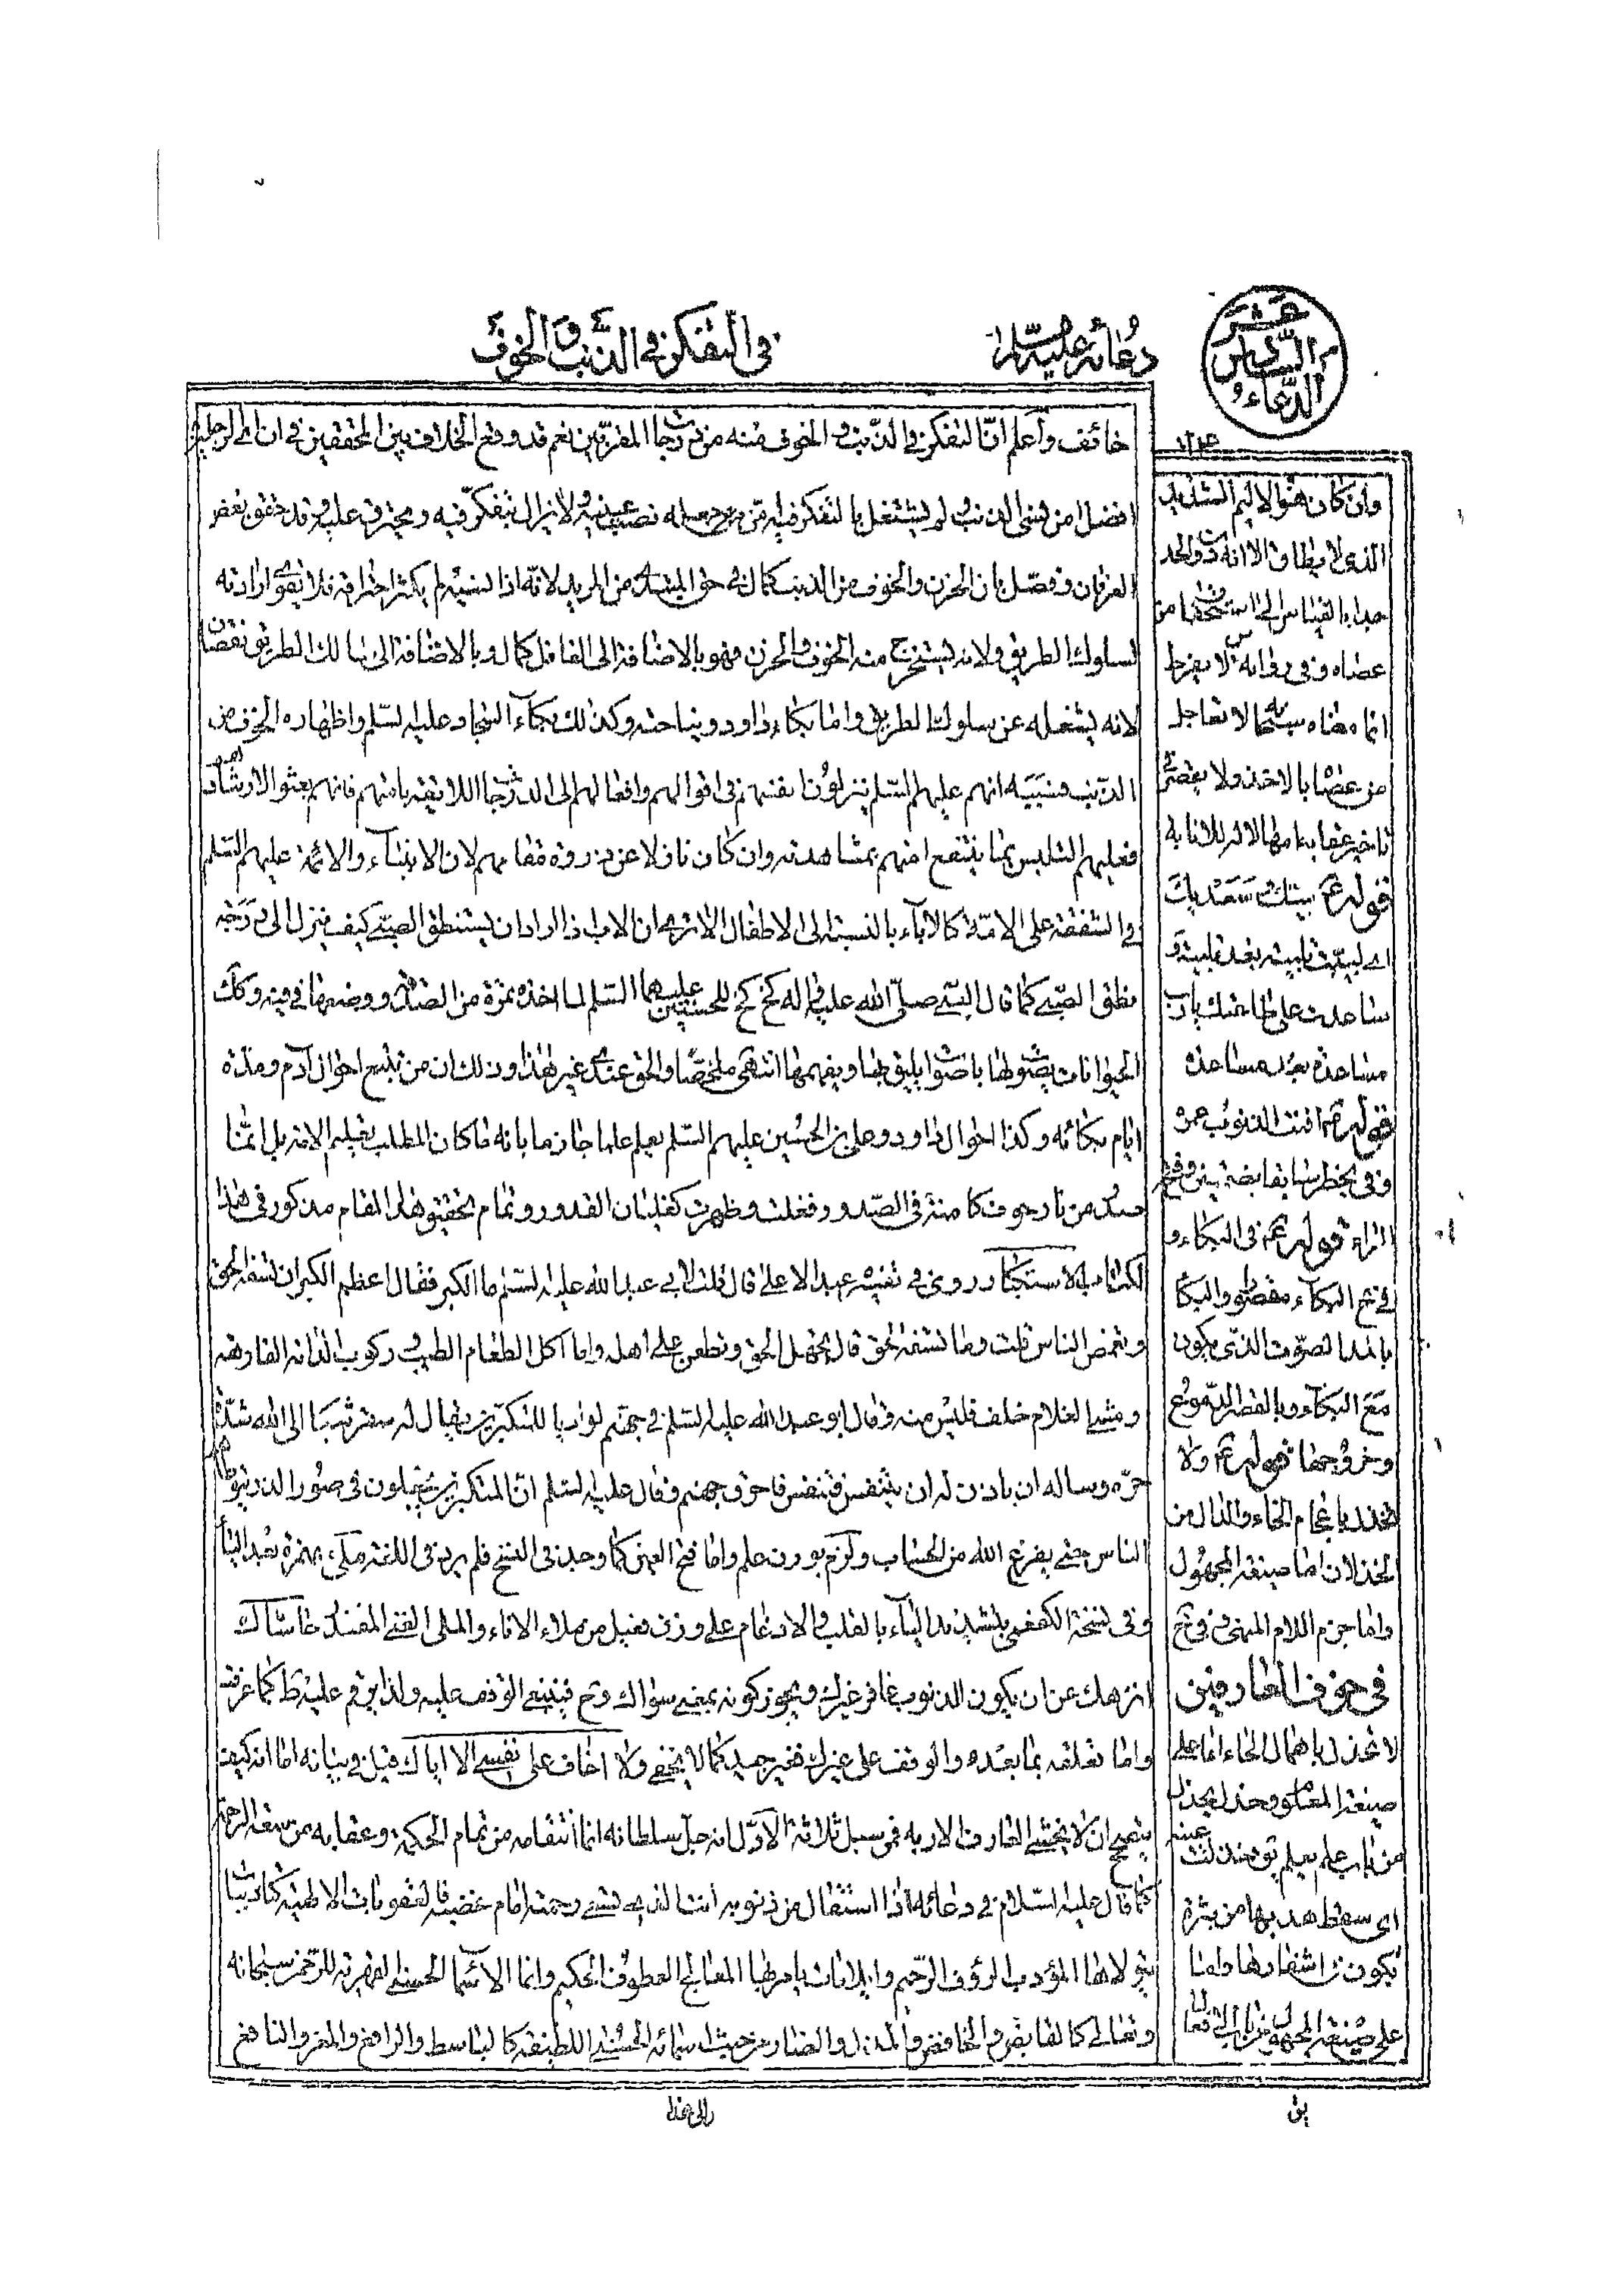 الدعاء السادس عشر
دعائه عليه السلام
في التفكر في الذنب والخوف
خائف واعلم ان التفكر في الذنب والخوف منه من درجات المقربين نعم قد وقع الخلاف بين المحققين في ان اي الرجلين
افضل من نسى الذنب ولم يشتغل بالتفكر فيه ام من جعله نصب عينيه ولا يزال يتفكر فيه ويحترق عليه وقد حقق بعض
العرفان وفصل بان الحزن والخوف من الذنب كمال في حق المبتدي من المريد لانه اذا نسيه لم يكثر احتراقه فلا يقوى ارادته
لسلوك الطريق ولانه يستخرج منه الخوف والحزن فهو بالاضافة الى الغافل كمال وبالاضافة الى سالك الطريق نقصان
لانه يشغله عن سلوك الطريق واما بكاء داود ونياحته وكذلك بكاء السجاد عليه السلم واظهاره الخوف من
الذنب فسببه انهم عليهم السلم ينزلون انفسهم في اقوالهم وافعالهم الى الدرجات اللائقة بامتهم فانهم بعثوا لارشادهم
فعليهم التلبس بما ينتفع امتهم بمشاهدته وان كان نازلا عن ذروة مقامهم لان الانبياء والائمة عليهم السلم
في الشفقة على الامة كالاباء بالنسبة الى الاطفال الا ترى ان الاب اذا اراد ان يستنطق الصبي كيف ينزل الى درجة
نطق الصبي كما قال النبي صلى الله عليه واله كخ كخ للحسين عليهما السلم لما اخذ تمرة من الصدقة ووضعها في فيه وكك
الحيوانات يصوت لها باصوات يليق بها ويفهمها انتهى ملخصا والحق عندي غير هذا وذلك ان من تتبع احوال ادم ومدة
ايام بكائه وكذا احوال داود وعلي بن الحسين عليهم السلم يعلم علما جازما بانه ما كان المطلب تعليم الامة بل انما
صدر من نار خوف كامنة في الصدور وفعلت وظهرت كغليان القدور وتمام تحقيق هذا المقام مذكور في هذا
الكتاب ولا استكبارا وروي في تفسيره عبد الاعلى قال قلت لابي عبد الله عليه السلم ما الكبر فقال اعظم الكبر ان تسفه الحق
وتغمص الناس قلت وما تسفه الحق قال تجهل الحق وتطعن على اهله واما اكل الطعام الطيب وركوب الدابة الفارهة
ومشي الغلام خلفه فليس منه وقال ابو عبد الله عليه السلم في جهنم لواديا للمتكبرين يقال له سقر شكا الى الله شدة
حره وساله ان ياذن له ان يتنفس فتنفس فاحرق جهنم وقال عليه السلم ان المتكبرين يجعلون في صور الذر يتوطاهم
الناس حتى يفرغ الله من الحساب
واما فتح العين كما وجد في النسخ فلم يرد في اللغة ملئ بهمزة بعد الياء
وفي نسخة الكفعمي بتشديد الياء بالقلب والادغام على وزن فعيل من ملاء الاناء والملي الغني المقتدر حاشاك
انزهك عن ان يكون الذنوب غافر غيرك ويجوز كونه بمعنى سواك وح فينبغي الوقف عليه ولذا رقم عليه ط كما عرفت
واما تعلقه بما بعده والوقف على غيرك فغير جيد كما لا يخفى ولا اخاف على نفسي الا اياك قيل في بيانه اما انه كيف
يصح ان لا يخشى العارف الا ربه فمن سبل ثلاثة الاول انه جل سلطانه انما انتقامه من تمام الحكمة وعقابه من سعة الرحمة
كما قال عليه السلام في دعائه اذا استقال من ذنوبه انت الذي تسعى رحمته امام غضبه فالعقوبات الالهية تاديبات
يتولاها المؤدب الرؤف الرحيم وايلامات يامر بها المعالج العطوف الحكيم وانما الاسماء الحسنى القهرية للرحمن سبحانه
وتعالى كالقابض والخافض والمذل والضار من حيث اسمائه الحسنى اللطيفة كالباسط والرافع والمعز والنافع
وان كان هو الاليم الشديد
الذي لا يطاق الا انه
عصاه وفي رواية س لا يفرط
انما معناه
من عصاه بالاخذ ولا
تاخير عقابه امهالا له للانابة
قوله ع لبيك وسعديك
اي لبيت تلبية بعد تلبية و
ساعدت على طاعتك يا رب
مساعدة بعد مساعدة
قوله ع افنت الذنوب عمره
وفي بخط
الراء قوله ع في البكاء و
في نخ البكاء مقصورا والبكا
بالمد الصوت الذي يكون
مع البكاء وبالقصر الدموع
وخروجها قوله ع ولا
تخذل باعجام الخاء والذال من
الخذلان اما صيغة المجهول
واما جزم اللام المنهي وفي نخ
في خوف العارفين
لا تحذل باهمال الحاء اما على
صيغة المعلوم وحذل يحذل
من باب علم يعلم يق حذلت عينه
اي سقط هدبها من بثرة
تكون في اشفارها واما
على صيغة المجهول من باب الافعال
يق
الى هذا